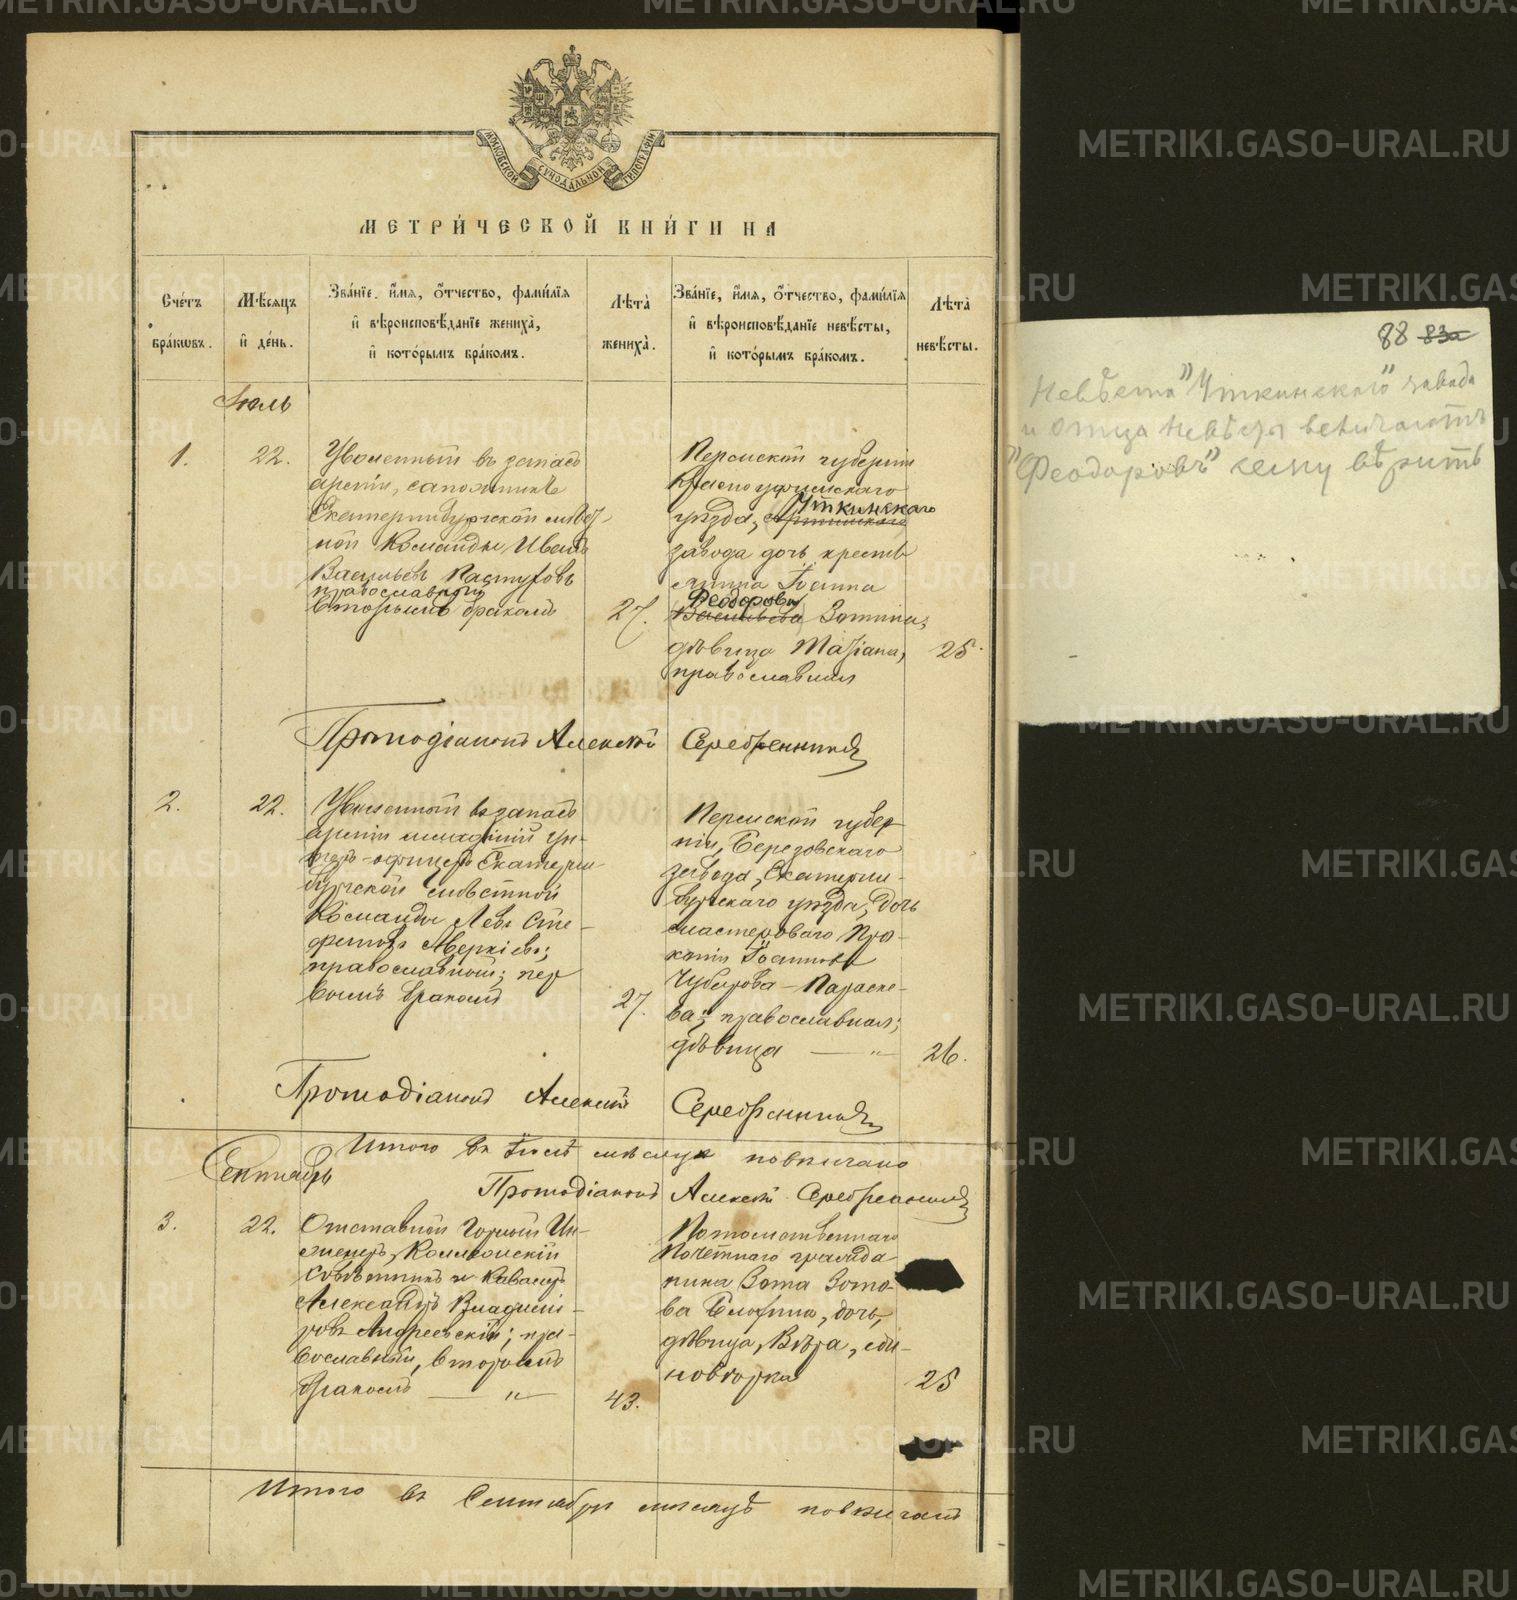 МОСКОВСКОЙ СѴНОДАЛЬНОЙ ТИПОГРАФІИ
МЕТРИ́ЧЕСКОЙ КНИ́ГИ НА
Сче́тъ бра́кѡвъ.
Мѣ́сѧцъ и҆ де́нь.
Зва́нїе, и҆́мѧ, ѻ҆́тчество, фами́лїѧ
и҆ вѣроисповѣ́данїе жениха̀,
и҆ кото́рымъ бра́комъ.
Лѣта̀ жениха̀.
Зва́нїе, и҆́мѧ, ѻ҆́тчество, фами́лїѧ
и҆ вѣроисповѣ́данїе невѣ́сты,
и҆ кото́рымъ бра́комъ.
Лѣта̀ невѣ́сты.
Іюль
1.
22.
Уволенный въ запасъ
арміи, сапожникъ
Екатеринбургской мѣст-
ной Команды Иванъ
Васильевъ Пастуховъ
православный
вторымъ бракомъ
27.
Пермской губерніи
Красноуфимскаго
Уткинскаго
уѣзда, Артинскаго
завода дочь крестья
нина Іоанна
Феодорова
Васильева Зотина,
дѣвица Маріана,
православная
25.
Протодіаконъ Алексѣй Серебренниковъ
2.
22.
Уволенный въ запасъ
арміи младшій ун-
теръ-офицеръ Екатерин
бургской мѣстной
Команды Левъ Сте-
фановъ Аверкіевъ;
православный; пер
вымъ бракомъ
27.
Пермской губер
ніи, Березовскаго
завода, Екатерин-
бургскаго уѣзда, дочь
мастероваго Про-
копія Іоаннова
Чубарова - Параске-
ва; православная;
дѣвица — " —
26.
Протодіаконъ Алексѣй Серебренниковъ
Итого въ Іюлѣ мѣсяцѣ повѣнчано
Сентябрь
Протодіаконъ Алексѣй Серебренниковъ
3.
22.
Отставной Горный Ин-
женеръ, Коллежскій
Совѣтникъ и Кавалеръ
Александръ Владимі-
ровъ Андреевскій; пра-
вославный, вторымъ
бракомъ — " —
43.
Потомственнаго
Почетнаго гражда
нина Зота Зото-
ва Блохина, дочь,
дѣвица, Вѣра, еди-
новѣрка
25
Итого въ Сентябрѣ мѣсяцѣ повѣнчано
88 83а
Невѣста "Уткинскаго" завода
и отца невѣсты величаютъ
"Феодоровъ" сему вѣрить
METRIKI.GASO-URAL.RU